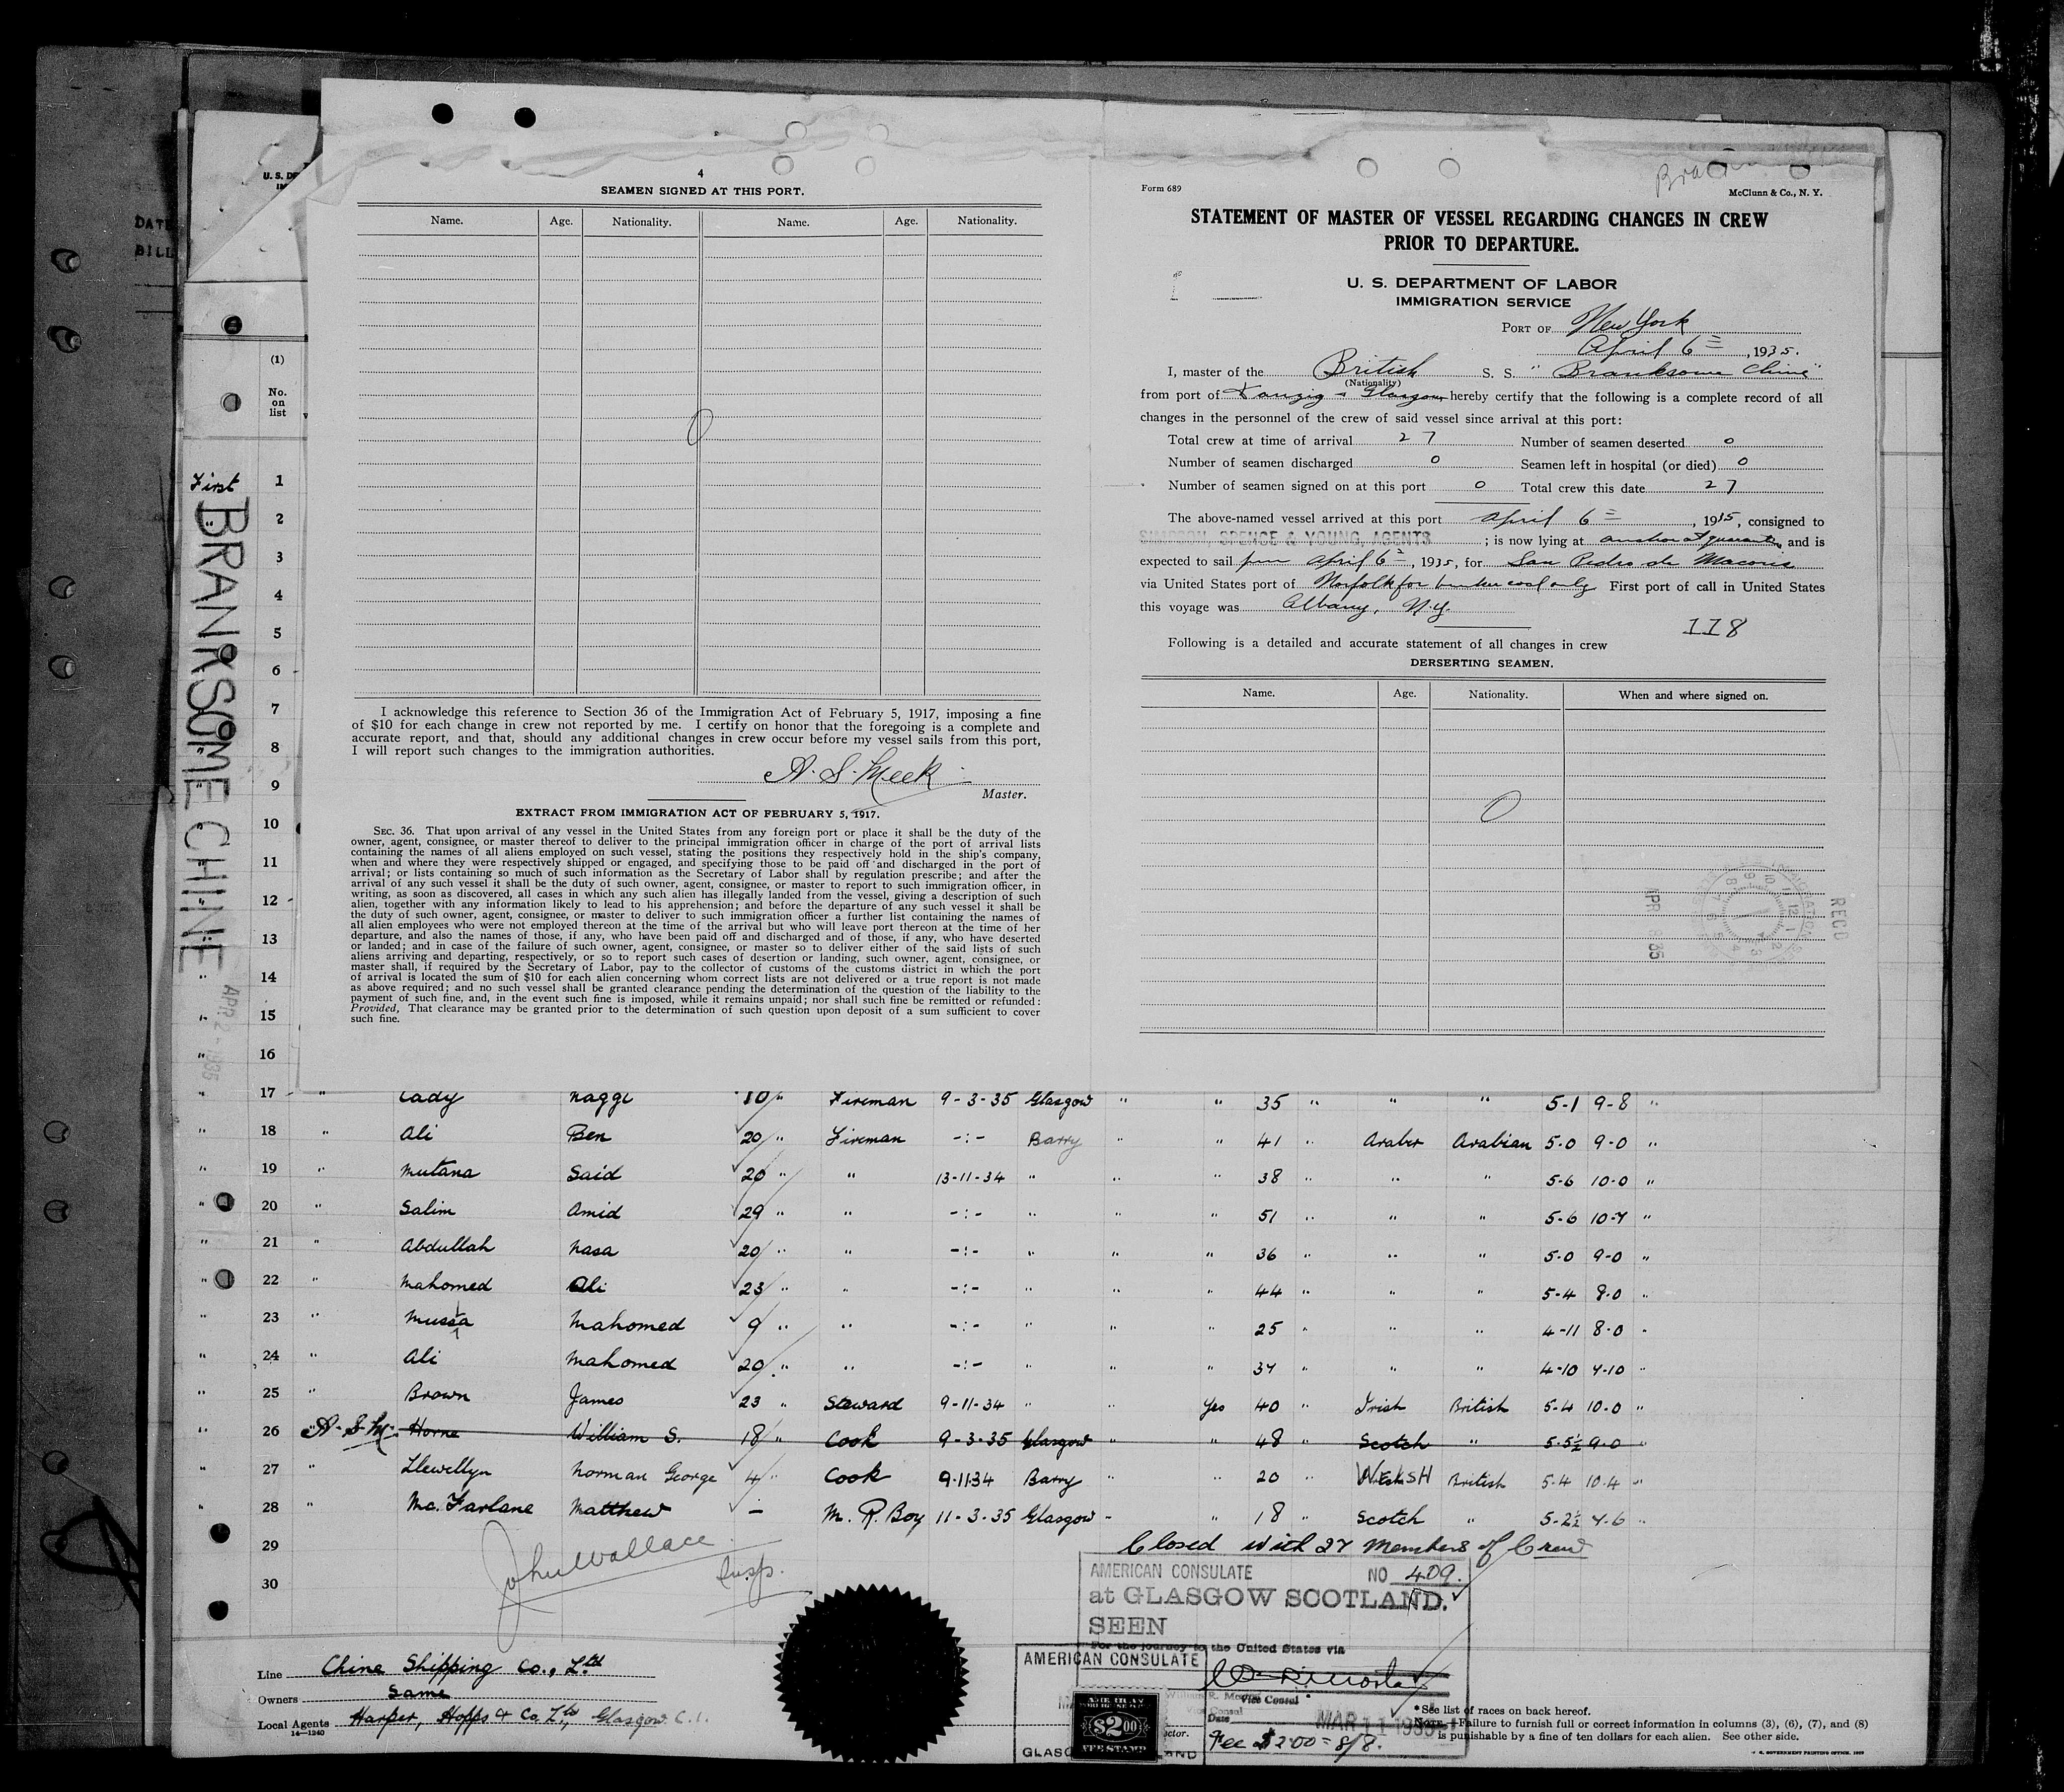 DATE
BILL
U. S. DE
(1)
No.
on
list
First
BRANKSOME CHINE
APR 2 - 1935
4
SEAMEN SIGNED AT THIS PORT.
Name. Age. Nationality. Name. Age. Nationality.
0
I acknowledge this reference to Section 36 of the Immigration Act of February 5, 1917, imposing a fine
of $10 for each change in crew not reported by me. I certify on honor that the foregoing is a complete and
accurate report, and that, should any additional changes in crew occur before my vessel sails from this port,
I will report such changes to the immigration authorities.
A. S. Meek
Master.
EXTRACT FROM IMMIGRATION ACT OF FEBRUARY 5, 1917.
SEC. 36. That upon arrival of any vessel in the United States from any foreign port or place it shall be the duty of the
owner, agent, consignee, or master thereof to deliver to the principal immigration officer in charge of the port of arrival lists
containing the names of all aliens employed on such vessel, stating the positions they respectively hold in the ship's company,
when and where they were respectively shipped or engaged, and specifying those to be paid off and discharged in the port of
arrival; or lists containing so much of such information as the Secretary of Labor shall by regulation prescribe; and after the
arrival of any such vessel it shall be the duty of such owner, agent, consignee, or master to report to such immigration officer, in
writing, as soon as discovered, all cases in which any such alien has illegally landed from the vessel, giving a description of such
alien, together with any information likely to lead to his apprehension; and before the departure of any such vessel it shall be
the duty of such owner, agent, consignee, or master to deliver to such immigration officer a further list containing the names of
all alien employees who were not employed thereon at the time of the arrival but who will leave port thereon at the time of her
departure, and also the names of those, if any, who have been paid off and discharged and of those, if any, who have deserted
or landed; and in case of the failure of such owner, agent, consignee, or master so to deliver either of the said lists of such
aliens arriving and departing, respectively, or so to report such cases of desertion or landing, such owner, agent, consignee, or
master shall, if required by the Secretary of Labor, pay to the collector of customs of the customs district in which the port
of arrival is located the sum of $10 for each alien concerning whom correct lists are not delivered or a true report is not made
as above required; and no such vessel shall be granted clearance pending the determination of the question of the liability to the
payment of such fine, and, in the event such fine is imposed, while it remains unpaid; nor shall such fine be remitted or refunded:
Provided, That clearance may be granted prior to the determination of such question upon deposit of a sum sufficient to cover
such fine.
Form 689
McClunn & Co., N. Y.
STATEMENT OF MASTER OF VESSEL REGARDING CHANGES IN CREW
PRIOR TO DEPARTURE.
U. S. DEPARTMENT OF LABOR
IMMIGRATION SERVICE
PORT OF New York
April 6th, 1935.
I, master of the British S. S. "Branksome Chine"
(Nationality)
from port of Danzig & Glasgow hereby certify that the following is a complete record of all
changes in the personnel of the crew of said vessel since arrival at this port:
Total crew at time of arrival 27 Number of seamen deserted 0
Number of seamen discharged 0 Seamen left in hospital (or died) 0
Number of seamen signed on at this port 0 Total crew this date 27
The above-named vessel arrived at this port April 6th, 1935, consigned to
SIMPSON, SPENCE & YOUNG, AGENTS ; is now lying at anchor at quarantine and is
expected to sail pm April 6th, 1935, for San Pedro de Macoris
via United States port of Norfolk for bunker coal only First port of call in United States
this voyage was Albany, N.Y.
118
Following is a detailed and accurate statement of all changes in crew
DERSERTING SEAMEN.
Name. Age. Nationality. When and where signed on.
0
RECD
APR 8 35
1
2
3
4
5
6
7
8
9
10
11
12
13
14
15
16
17 " Cady Naggi 10 " Fireman 9-3-35 Glasgow " " 35 " " " 5-1 9-8 "
" 18 " Ali Ben 20 " Fireman -:- Barry " " 41 " Araber Arabian 5-0 9-0 "
" 19 " Mutana Said 20 " " 13-11-34 " " " 38 " " " 5-6 10-0 "
" 20 " Salim Amid 29 " " -:- " " " 51 " " " 5-6 10-7 "
" 21 " Abdullah Nasa 20 " " -:- " " " 36 " " " 5-0 9-0 "
" 22 " Mahomed Ali 23 " " -:- " " " 44 " " " 5-4 8-0 "
" 23 " Mussa Mahomed 9 " " -:- " " " 25 " " " 4-11 8-0 "
" 24 " Ali Mahomed 20 " " -:- " " " 37 " " " 4-10 7-10 "
" 25 " Brown James 23 " Steward 9-11-34 " " Yes 40 " Irish British 5-4 10-0 "
" 26 A.S.M. Horne William S. 18 " Cook 9-3-35 Glasgow " " 48 " Scotch " 5-5½ 9-0 "
" 27 " Llewellyn Norman George 4 " Cook 9-11-34 Barry " 20 " WELSH British 5-4 10-4 "
" 28 " Mc. Farlane Matthew - M. R. Boy 11-3-35 Glasgow " " 18 " Scotch " 5-2½ 7-6 "
29 Closed with 27 Members of Crew
30
John Wallace
Insp.
AMERICAN CONSULATE NO 409.
at GLASGOW SCOTLAND.
SEEN
For the journey to the United States via
AMERICAN CONSULATE
Vice Consul
Date MAR 11 1935
$2.00
FEE STAMP
Fee $2.00 = 8/8.
Line Chine Shipping Co., Ltd
Owners Same
Local Agents Harper, Hopps & Co. Ltd, Glasgow. C.1.
14—1240
* See list of races on back hereof.
NOTE.—Failure to furnish full or correct information in columns (3), (6), (7), and (8)
is punishable by a fine of ten dollars for each alien. See other side.